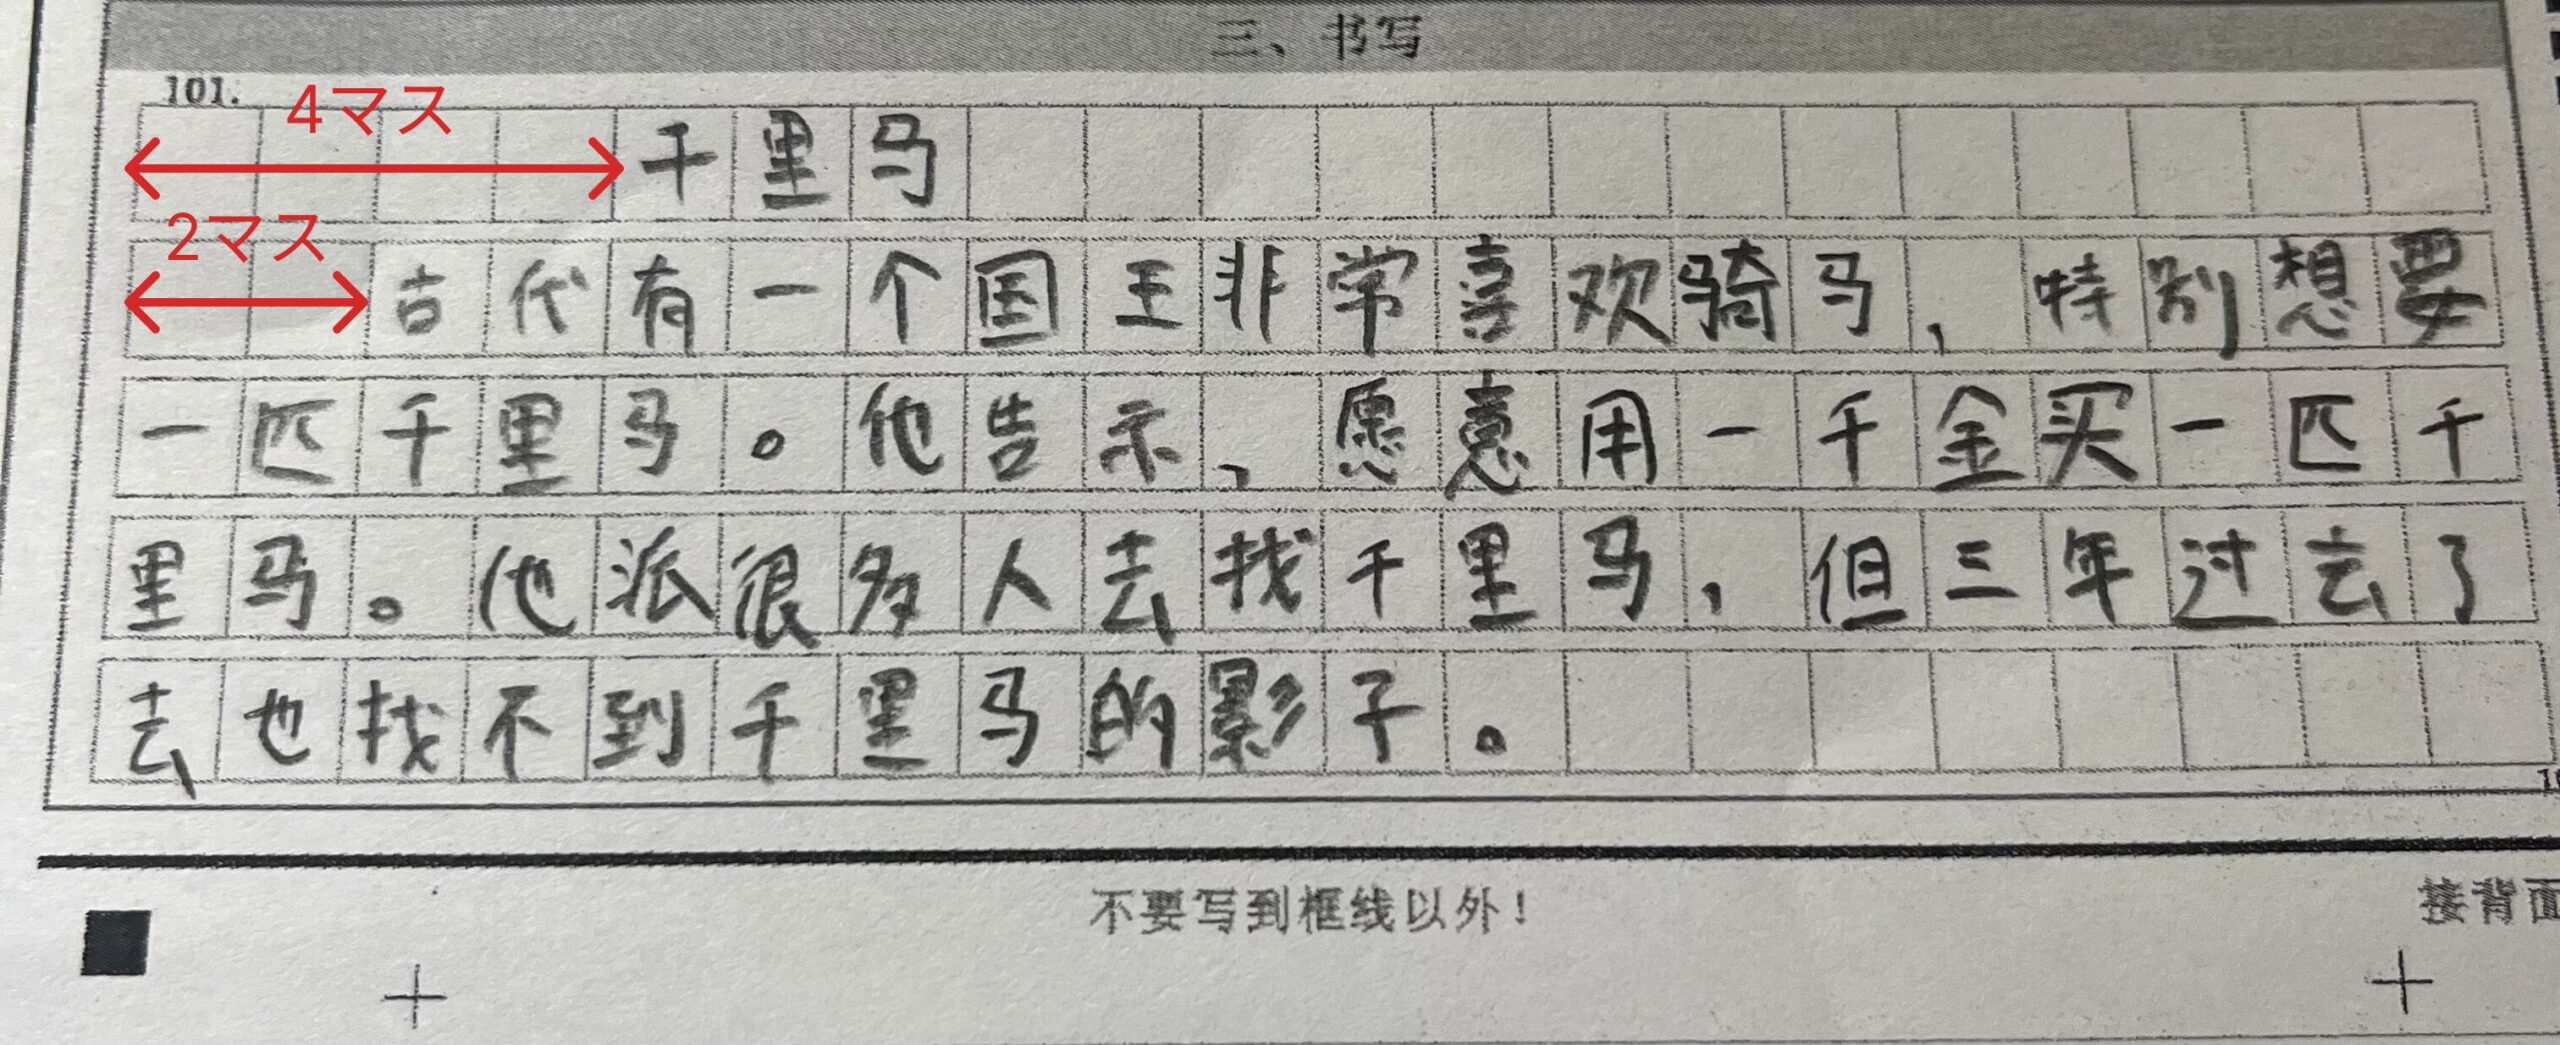 三、书写
101.
4マス
千里马
2マス
古代有一个国王非常喜欢骑马，特别想要
一匹千里马。他告示，愿意用一千金买一匹千
里马。他派很多人去找千里马，但三年过去了
去也找不到千里马的影子。
不要写到框线以外！
接背面